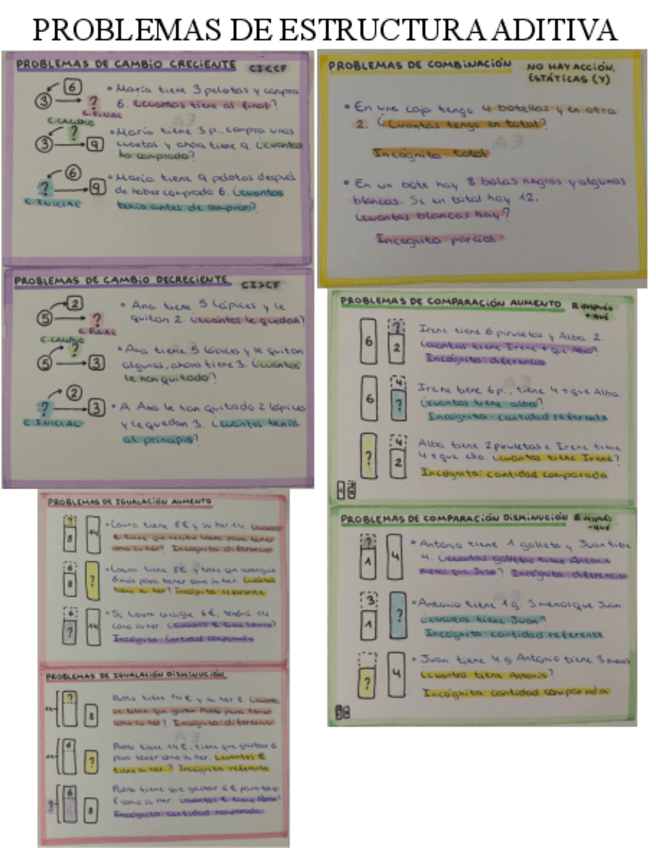 PROBLEMAS DE ESTRUCTURA ADITIVA
PROBLEMAS DE CAMBIO CRECIENTE CI<CF
6
3 ?
C. FINAL
• María tiene 3 pelotas y compra
6. ¿Cuántas tiene al final?
C. CAMBIO
?
3 9
• María tiene 3 p., compra unas
cuantas y ahora tiene 9. ¿Cuántas
ha comprado?
6
? 9
C. INICIAL
• María tiene 9 pelotas después
de haber comprado 6. ¿Cuántas
tenía antes de comprar?
PROBLEMAS DE CAMBIO DECRECIENTE CI>CF
2
5 ?
C. FINAL
• Ana tiene 5 lápices y le
quitan 2. ¿Cuántos le quedan?
C. CAMBIO
?
5 3
• Ana tiene 5 lápices y le quitan
algunos, ahora tiene 3. ¿Cuántos
le han quitado?
2
? 3
C. INICIAL
• A Ana le han quitado 2 lápices
y le quedan 3. ¿Cuántos tenía
al principio?
PROBLEMAS DE COMBINACIÓN NO HAY ACCIÓN,
ESTÁTICAS (Y)
• En una caja tengo 4 botellas y en otra
2. ¿Cuántas tengo en total?
Incógnita: total
• En un bote hay 8 bolas negras y algunas
blancas. Si en total hay 12,
¿cuántas blancas hay?
Incógnita: parcial
PROBLEMAS DE COMPARACIÓN AUMENTO R después
+ qué
6 ? 2
Irene tiene 6 piruletas y Alba 2.
¿Cuántas tiene Irene + que Alba?
Incógnita: diferencia
6 4 ?
Irene tiene 6 p., tiene 4 + que Alba.
¿Cuántas tiene alba?
Incógnita: cantidad referente
? 4 2
Alba tiene 2 piruletas e Irene tiene
4 + que ella. ¿Cuántas tiene Irene?
Incógnita: cantidad comparada
PROBLEMAS DE COMPARACIÓN DISMINUCIÓN R después
- qué
? 1 4
• Antonio tiene 1 galleta y Juan tiene
4. ¿Cuántas galletas tiene Antonio
menos que Juan? Incógnita: diferencia
3 1 ?
• Antonio tiene 1 g, 3 menos que Juan.
¿Cuántas tiene Juan?
Incógnita cantidad referente
? 4
• Juan tiene 4 g Antonio tiene 3 menos
¿Cuántas tiene Antonio?
Incógnita cantidad comparada
PROBLEMAS DE IGUALACIÓN AUMENTO
? 8 14
• Laura tiene 8€ y su her 14. ¿Cuántos
€ tiene que recibir Laura para tener
como su her? Incógnita: diferencia
6 8 ?
• Laura tiene 8€ y tiene que conseguir
6 más para tener como su her. ¿Cuántos
tiene su her? Incógnita: referente
6 ? 14
• Si Laura consigue 6€, tendrá 14
como su her. ¿Cuántos € tiene Laura?
Incógnita: cantidad comparada
PROBLEMAS DE IGUALACIÓN DISMINUCIÓN
? 8
Pablo tiene 14€ y su her 8. ¿Cuántos
€ tiene que gastar Pablo para tener
como su her? Incógnita: diferencia
6 ?
Pablo tiene 14€, tiene que gastar 6
para tener como su her. ¿Cuántos €
tiene su her.? Incógnita: referente
6 ? 8
Pablo tiene que gastar 6€ para
8 como su her. ¿Cuántos € tiene Pablo?
Incógnita: cantidad comparada